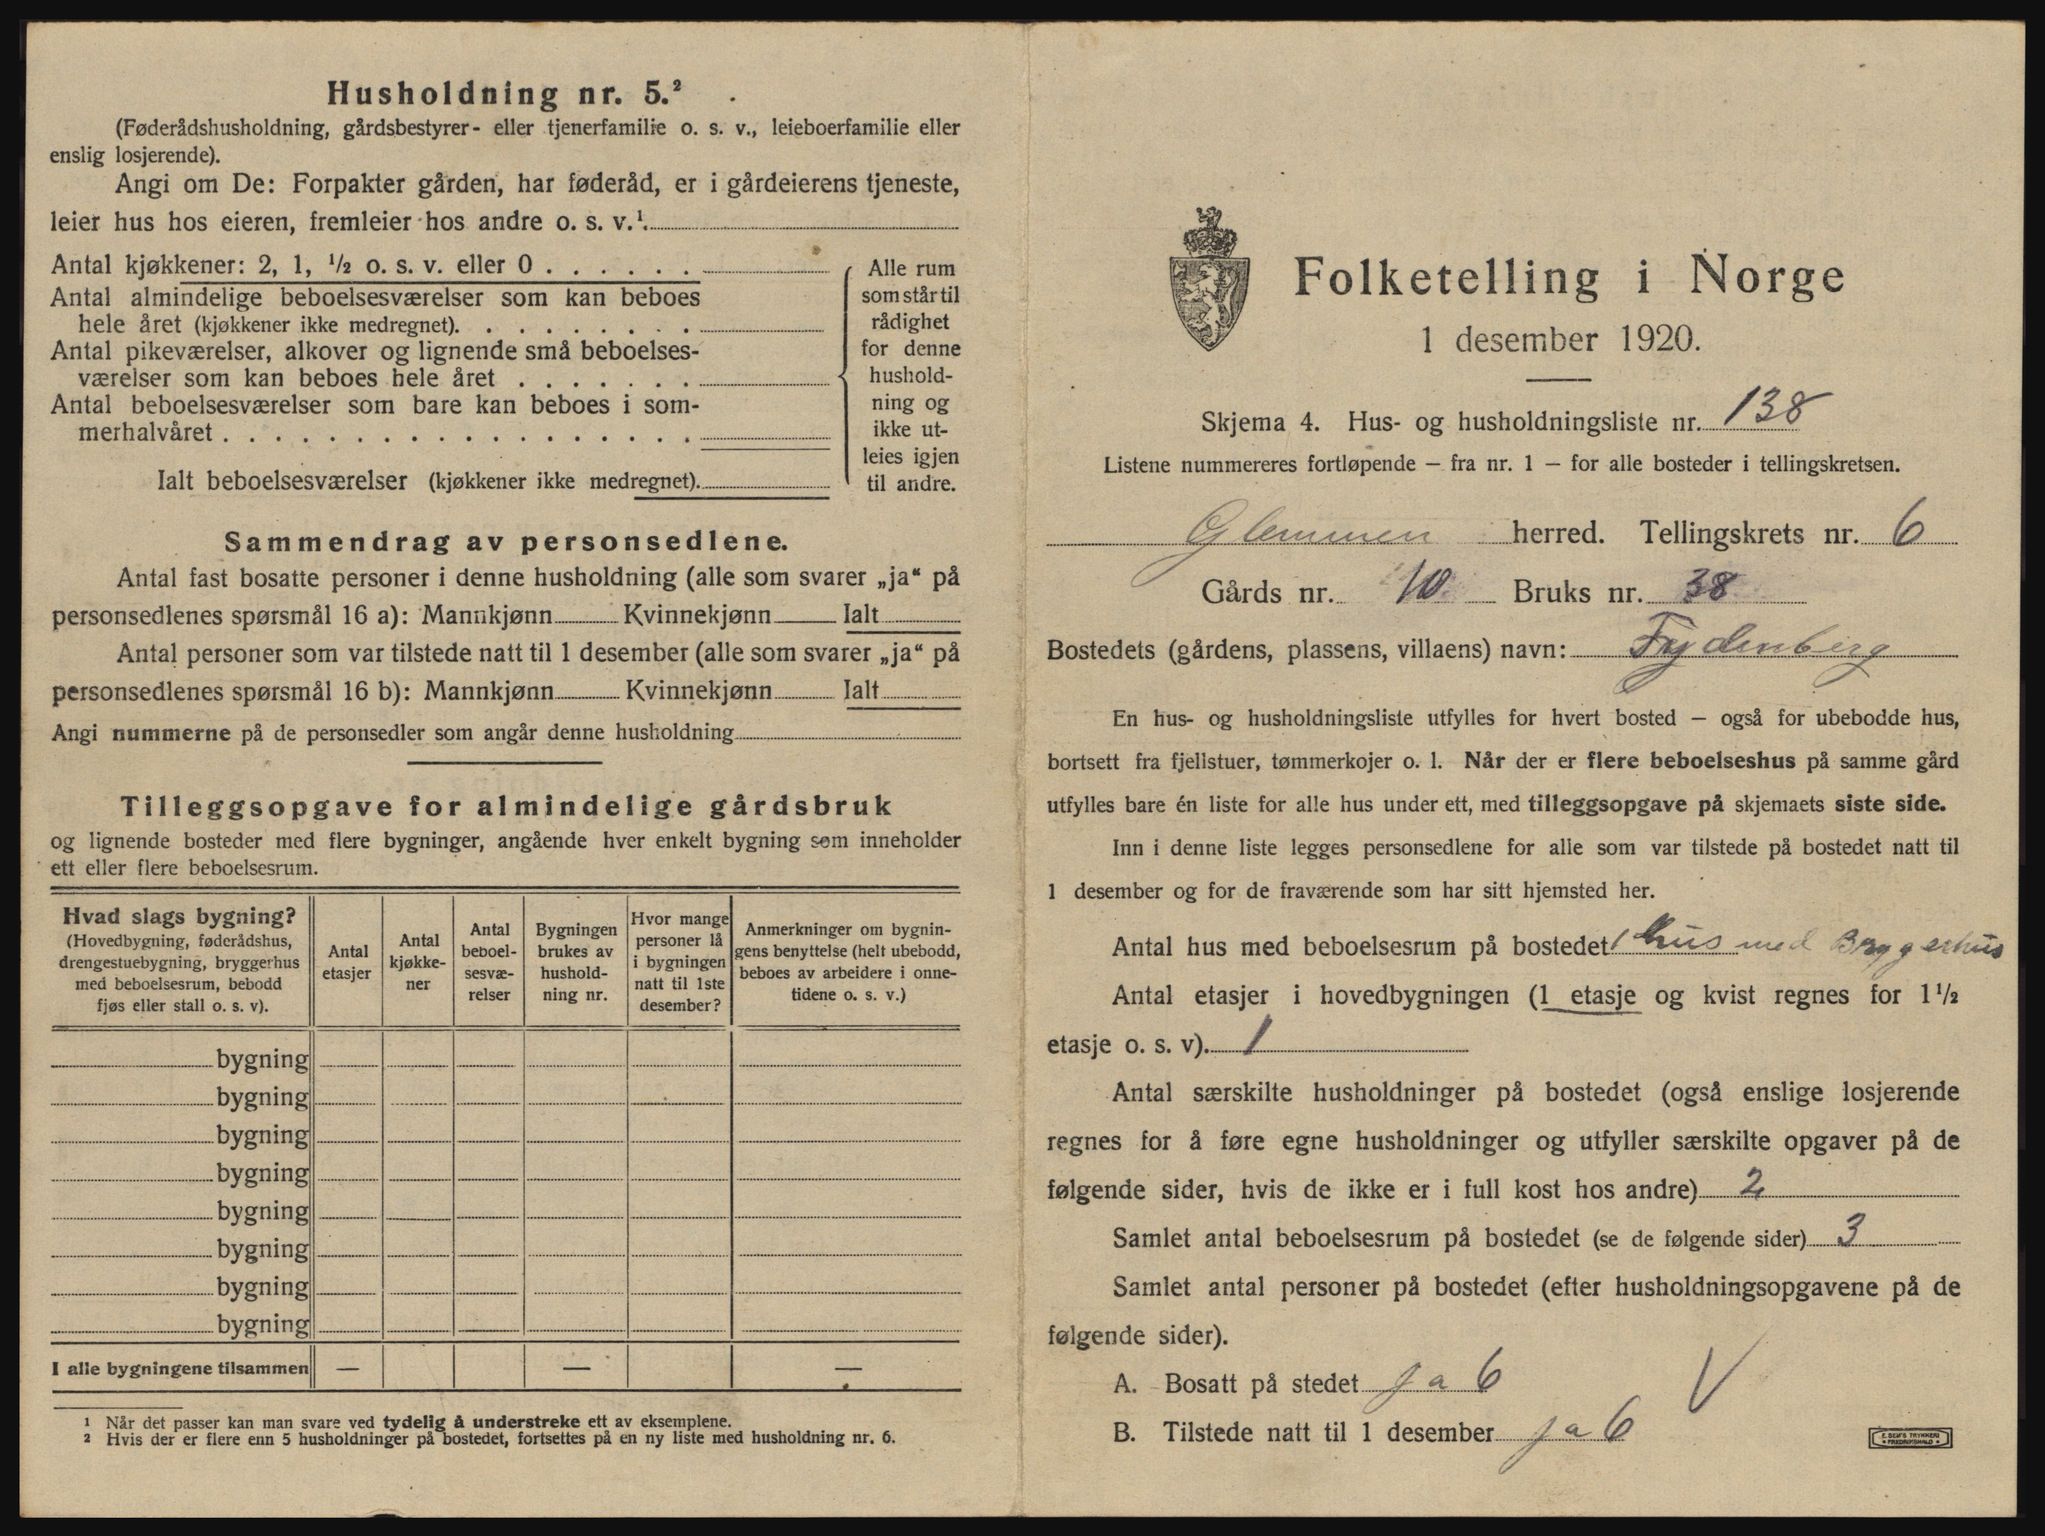 Husholdning nr. 5.²
(Føderådshusholdning, gårdsbestyrer- eller tjenerfamilie o. s. v., leieboerfamilie eller
enslig losjerende).
Angi om De: Forpakter gården, har føderåd, er i gårdeierens tjeneste,
leier hus hos eieren, fremleier hos andre o. s. v.¹
Antal kjøkkener: 2, 1, ½ o. s. v. eller 0 . . . . . .
Antal almindelige beboelsesværelser som kan beboes
hele året (kjøkkener ikke medregnet). . . . . . . . .
Antal pikeværelser, alkover og lignende små beboelses-
værelser som kan beboes hele året . . . . . . .
Antal beboelsesværelser som bare kan beboes i som-
merhalvåret . . . . . . . . . . . . . . . . . .
Ialt beboelsesværelser (kjøkkener ikke medregnet).
Alle rum
som står til
rådighet
for denne
hushold-
ning og
ikke ut-
leies igjen
til andre.
Sammendrag av personsedlene.
Antal fast bosatte personer i denne husholdning (alle som svarer „ja“ på
personsedlenes spørsmål 16 a): Mannkjønn Kvinnekjønn Ialt
Antal personer som var tilstede natt til 1 desember (alle som svarer „ja“ på
personsedlenes spørsmål 16 b): Mannkjønn Kvinnekjønn Ialt
Angi nummerne på de personsedler som angår denne husholdning
Tilleggsopgave for almindelige gårdsbruk
og lignende bosteder med flere bygninger, angående hver enkelt bygning som inneholder
ett eller flere beboelsesrum.
Hvad slags bygning?
(Hovedbygning, føderådshus,
drengestuebygning, bryggerhus
med beboelsesrum, bebodd
fjøs eller stall o. s. v).
Antal
etasjer
Antal
kjøkke-
ner
Antal
beboel-
sesvæ-
relser
Bygningen
brukes av
hushold-
ning nr.
Hvor mange
personer lå
i bygningen
natt til 1ste
desember?
Anmerkninger om bygnin-
gens benyttelse (helt ubebodd,
beboes av arbeidere i onne-
tidene o. s. v.)
bygning
bygning
bygning
bygning
bygning
bygning
bygning
bygning
I alle bygningene tilsammen — — —
¹ Når det passer kan man svare ved tydelig å understreke ett av eksemplene.
² Hvis der er flere enn 5 husholdninger på bostedet, fortsettes på en ny liste med husholdning nr. 6.
Folketelling i Norge
1 desember 1920.
Skjema 4. Hus- og husholdningsliste nr. 138
Listene nummereres fortløpende – fra nr. 1 – for alle bosteder i tellingskretsen.
Glemmen herred. Tellingskrets nr. 6
Gårds nr. 10 Bruks nr. 38
Bostedets (gårdens, plassens, villaens) navn: Frydenberg
En hus- og husholdningsliste utfylles for hvert bosted – også for ubebodde hus,
bortsett fra fjellstuer, tømmerkojer o. l. Når der er flere beboelseshus på samme gård
utfylles bare én liste for alle hus under ett, med tilleggsopgave på skjemaets siste side.
Inn i denne liste legges personsedlene for alle som var tilstede på bostedet natt til
1 desember og for de fraværende som har sitt hjemsted her.
Antal hus med beboelsesrum på bostedet 1 hus med Bryggerhus
Antal etasjer i hovedbygningen (1 etasje og kvist regnes for 1½
etasje o. s. v). 1
Antal særskilte husholdninger på bostedet (også enslige losjerende
regnes for å føre egne husholdninger og utfyller særskilte opgaver på de
følgende sider, hvis de ikke er i full kost hos andre) 2
Samlet antal beboelsesrum på bostedet (se de følgende sider) 3
Samlet antal personer på bostedet (efter husholdningsopgavene på de
følgende sider).
A. Bosatt på stedet ja 6
B. Tilstede natt til 1 desember ja 6
E. SEM'S TRYKKERI
FREDRIKSHALD